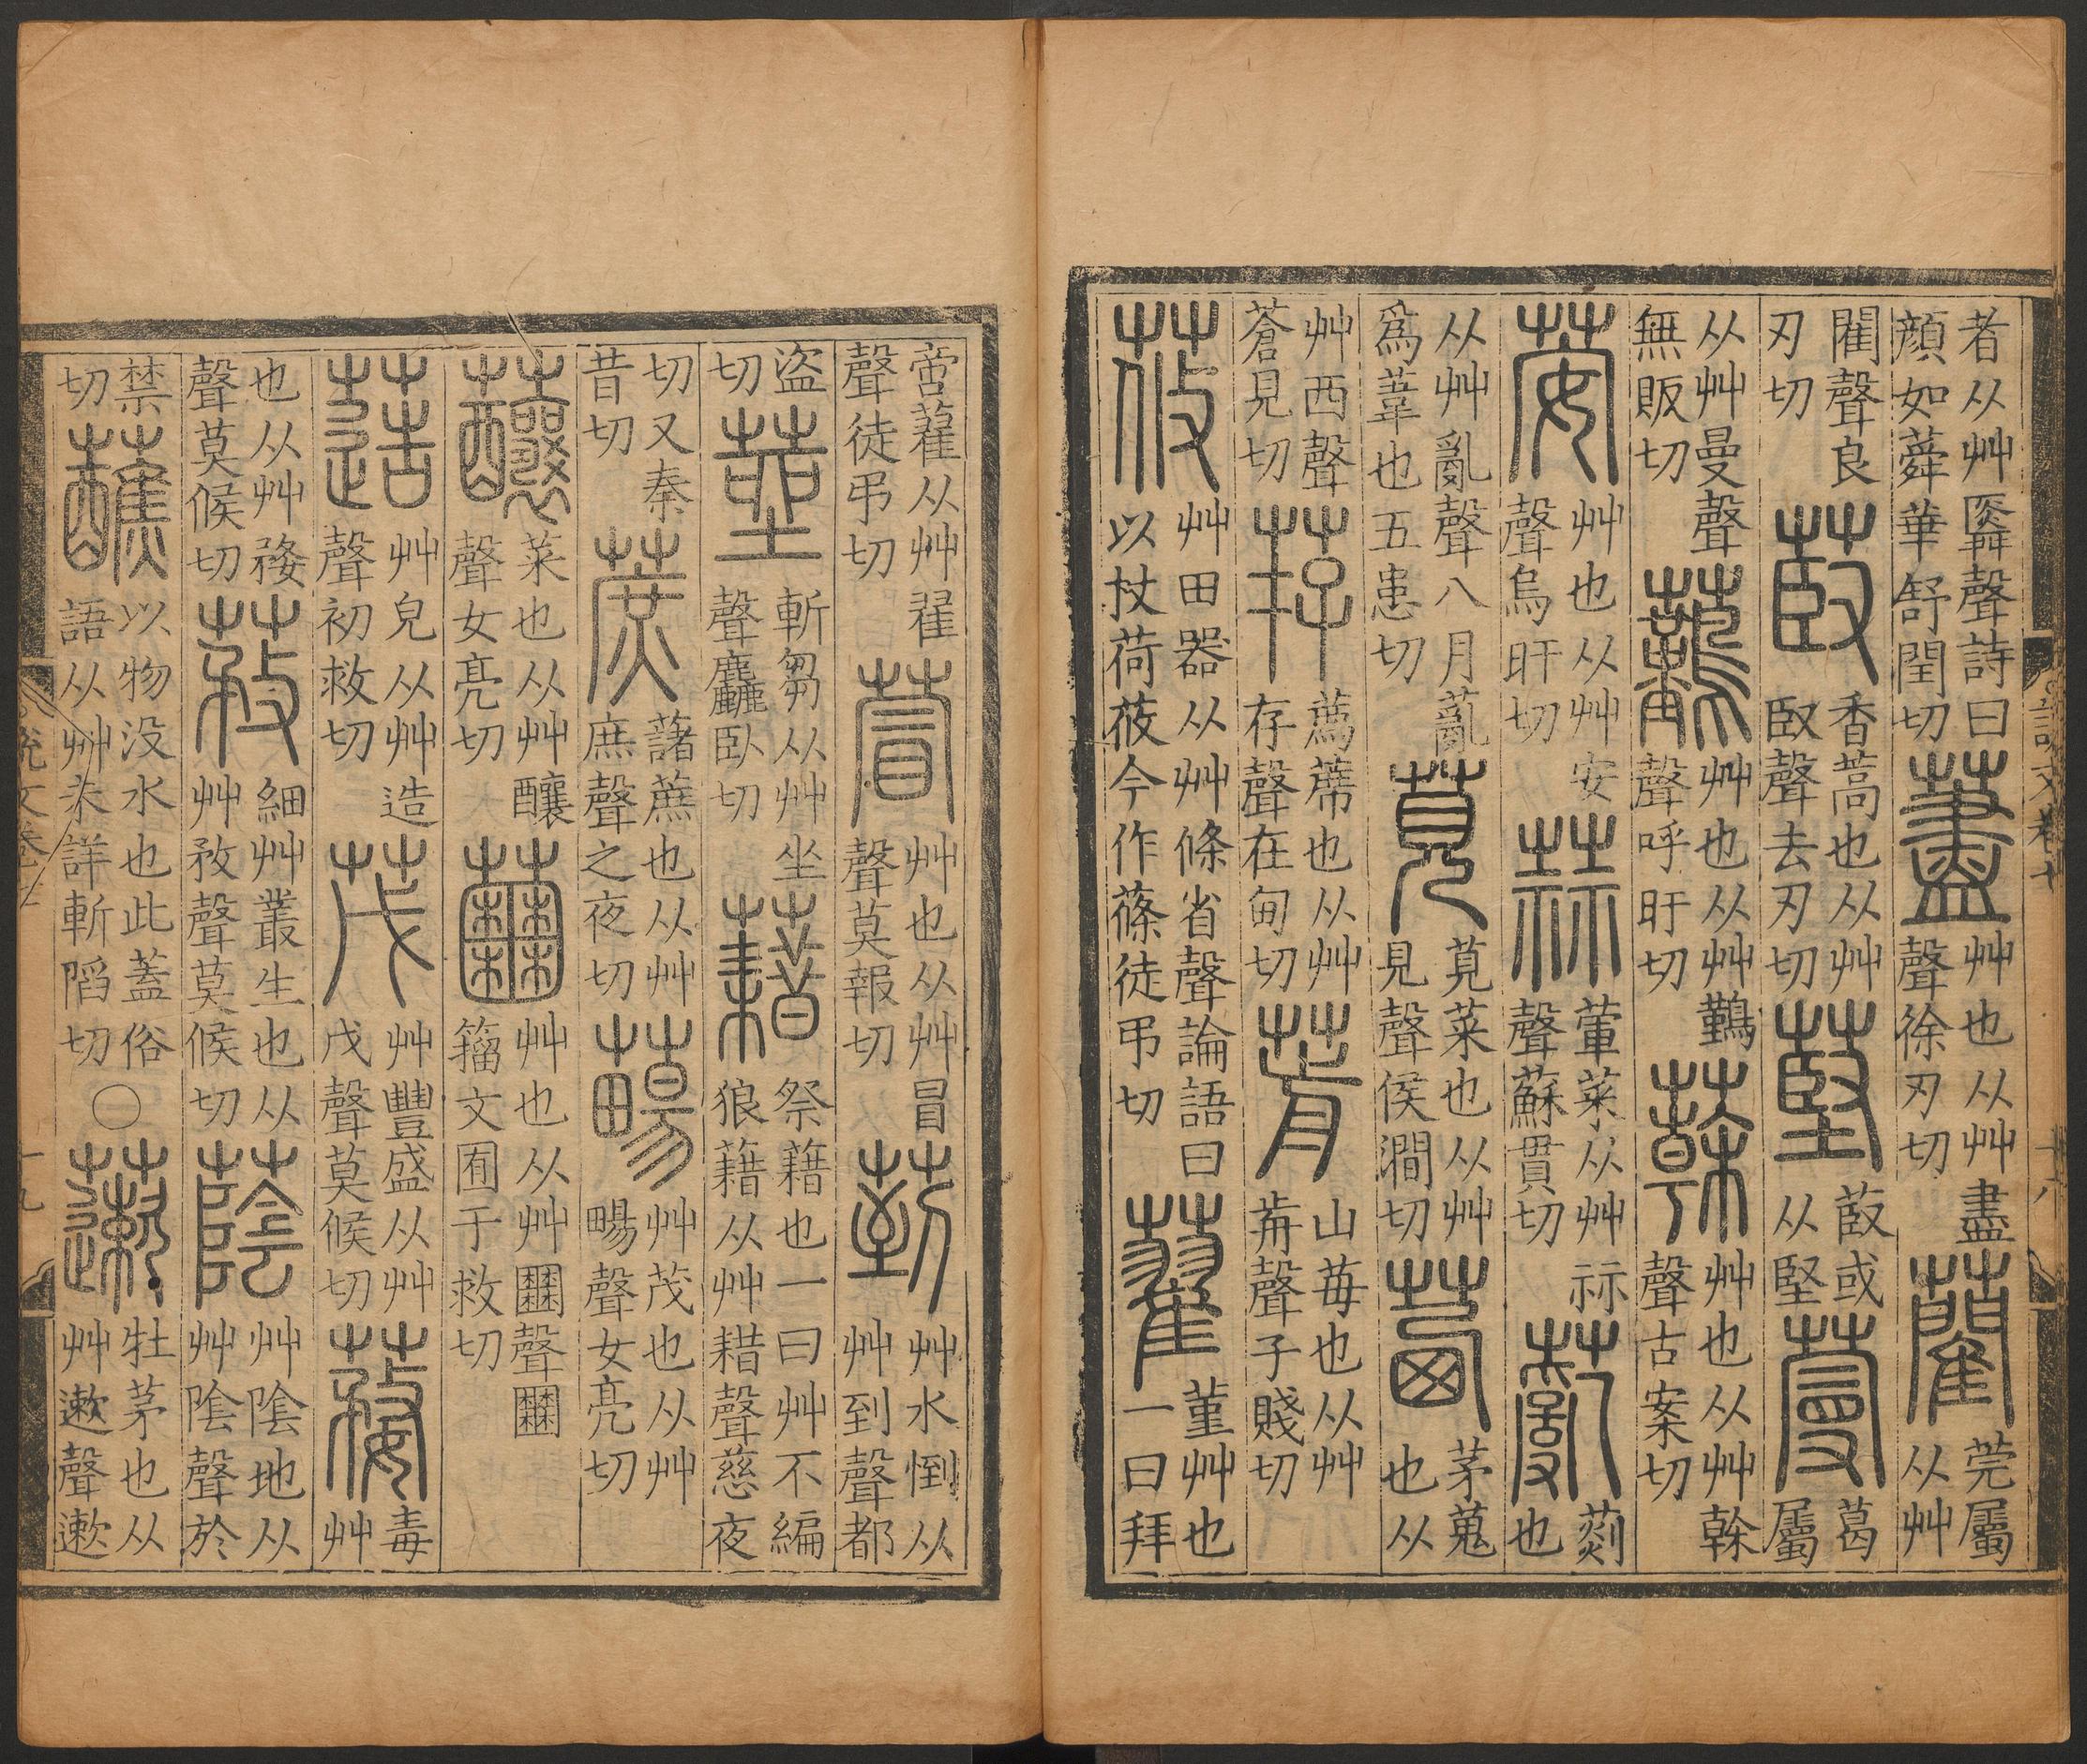 者从艸䑞聲詩曰
顔如蕣華舒閏切
藎
艸也从艸盡
聲徐刃切
藺
莞屬
从艸
閵聲良
刃切
菣
香蒿也从艸
臤聲去刃切
䕌
菣或
从堅
蔓
葛
屬
从艸曼聲
無販切
艸也从艸鷬
聲呼旰切
艸也从艸榦
聲古案切
荌
艸也从艸安
聲烏旰切
蒜
葷菜从艸祘
聲蘇貫切
薍
也
从艸亂聲八月薍
爲葦也五患切
莧
莧菜也从艸
見聲侯澗切
茜
茅蒐
也从
艸西聲
蒼見切
荐
薦蓆也从艸
存聲在甸切
葥
山莓也从艸
歬聲子賤切
莜
艸田器从艸條省聲論語曰
以杖荷莜今作蓧徒弔切
藋
堇艸也
一曰拜
說文卷七
十八
啇藋从艸翟
聲徒弔切
萺
艸也从艸冒
聲莫報切
菿
艸水倒从
艸到聲都
盜
切
莝
斬芻从艸坐
聲麤臥切
藉
祭籍也一曰艸不編
狼藉从艸耤聲慈夜
切又秦
昔切
蔗
藷蔗也从艸
庶聲之夜切
艸茂也从艸
畼聲女亮切
菜也从艸釀
聲女亮切
艸也从艸𡈹聲𡈹
籀文囿于救切
䔏
艸皃从艸造
聲初救切
茂
艸豐盛从艸
戊聲莫候切
毒
艸
也从艸婺
聲莫候切
細艸叢生也从
艸敄聲莫候切
蔭
艸陰地从
艸陰聲於
禁
切
蘸
以物没水也此蓋俗
語从艸未詳斬䧟切
〇
牡茅也从
艸遬聲遬
說文卷七
十九